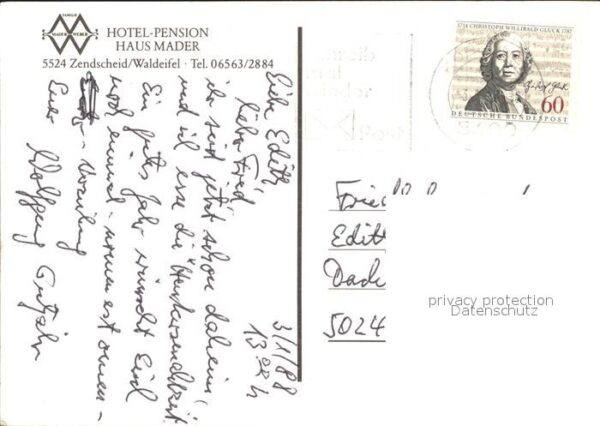 FAMILIE
MADER WEBER
HOTEL-PENSION
HAUS MADER
5524 Zendscheid/Waldeifel · Tel. 06563/2884
1714 CHRISTOPH WILLIBALD GLUCK 1787
60
DEUTSCHE BUNDESPOST
3/1/88
13 00 h
Liebe Edith
lieber Fred
ihr seid jetzt schon daheim
und ich esse die
Ein gutes Jahr wünscht Euch
noch einmal - nomen est omen -
Verzeihung
Euer Wolfgang Gutjahr
Frie
Edith
Dach
5024
privacy protection
Datenschutz